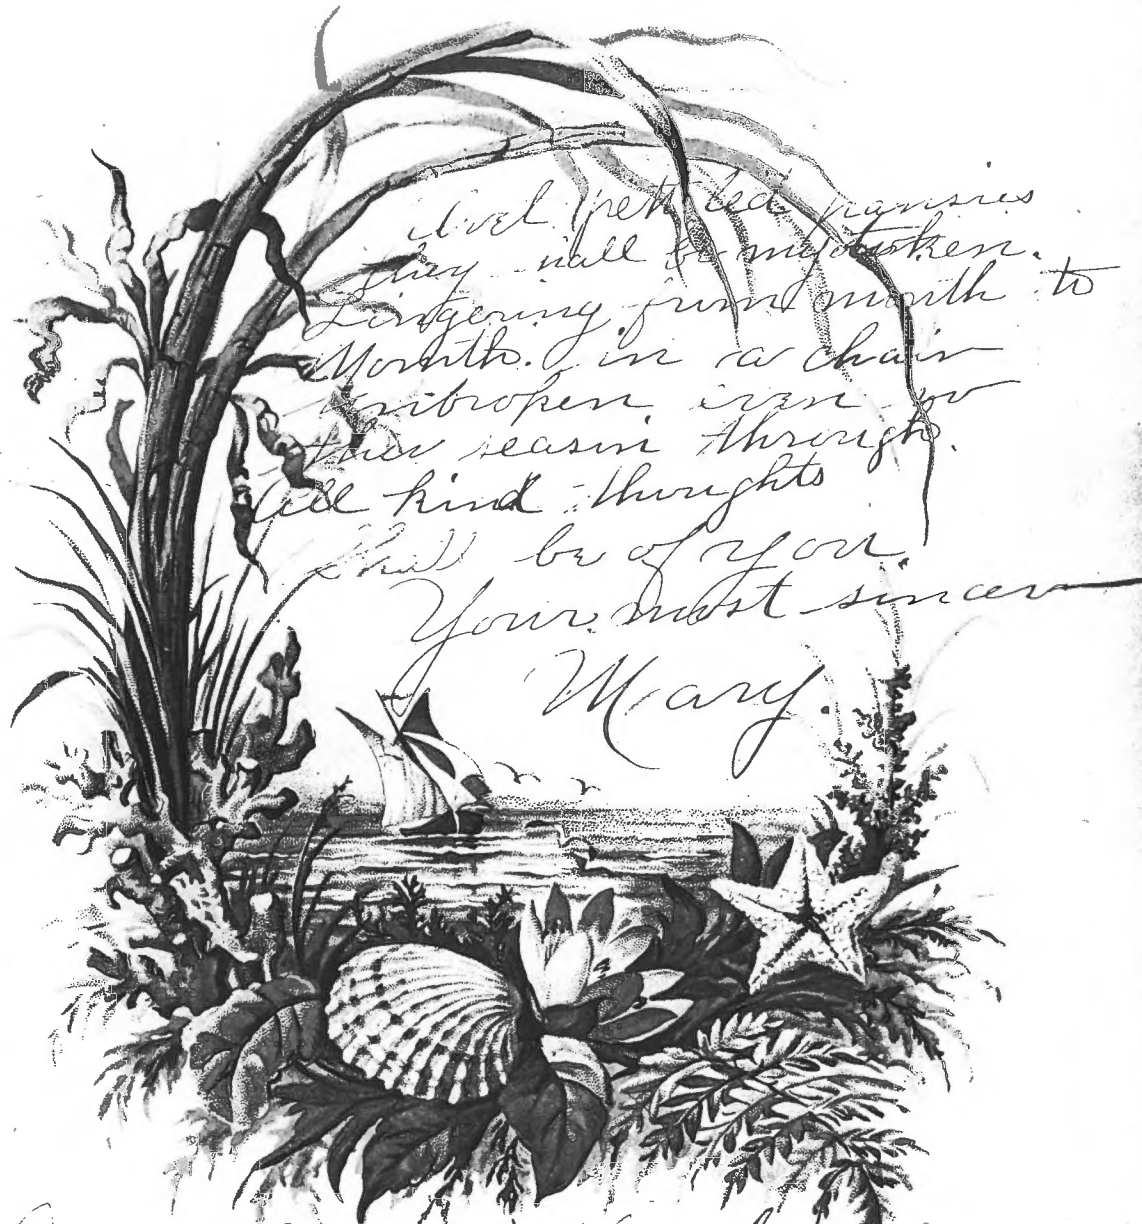 pansies
they will be my token.
Lingering from month to
Month. in a chain
unbroken. even so
the season through.
all kind thoughts
Shall be of you.
Your most sincer
Mary.